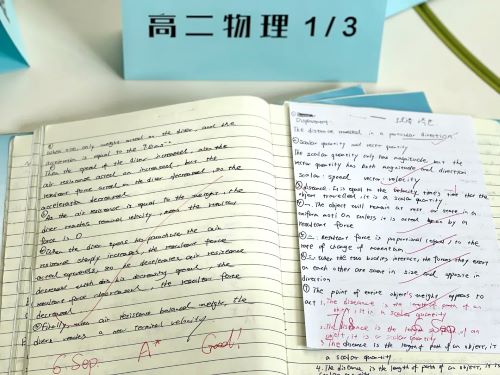 高二物理 1/3
when the only weight acted on the diver, and the
acceleration is equal to the
Then the speed of the diver increased, also the
air resistance acted on increased, but the
resultant force acted on the diver decreased, so the
acceleration decreased.
the air resistance is equal to the weight, the
diver reaches terminal velocity, and the resultant
force is 0
When the diver opens his parachute the air
resistance sharply increases, the resultant force
acted upwards, so he decelerates, air resistance
decrease with his decreasing speed, the
resultant force decreased
Finally, when air resistance balanced weight, the
diver reaches a new terminal velocity
6 Sep. A* Good!
Displacement:
The distance travelled in a particular direction
Scalar quantity and vector quantity
The scalar quantity only has magnitude, but the
vector quantity has both magnitude and direction
scalar: speed vector: velocity
distance is equal to the velocity times time that the
object travelled, it is a scalar quantity
The object will remain at rest or in a
uniform motion unless it is acted upon by a
resultant force
Resultant force is proportional to the
rate of change of momentum
When the two bodies interact, the forces they exert
on each other are same in size and opposite in
direction
The point of entire object's weight appears to
act
1. The distance is the length of path of an
object, it is a scalar quantity
2. The distance is the length of path of an
object, it is a scalar quantity
3. The distance is the length of path of an object, it is
a scalar quantity
4. The distance is the length of path of an object, it is